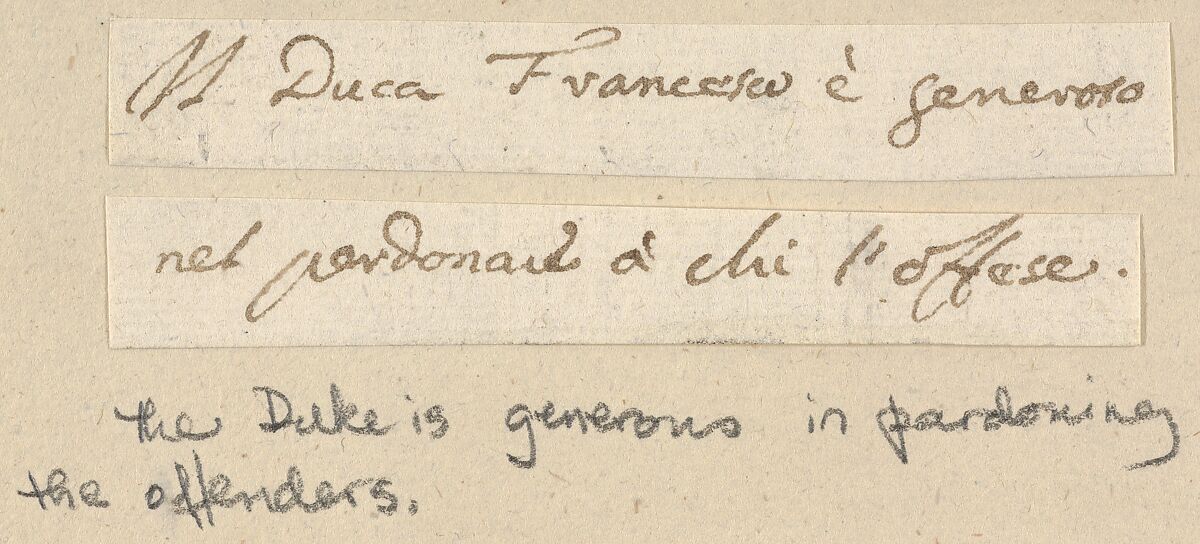 Il Duca Francesco è generoso
nel perdonare à chi l'offese.
the Duke is generous in pardoning
the offenders.